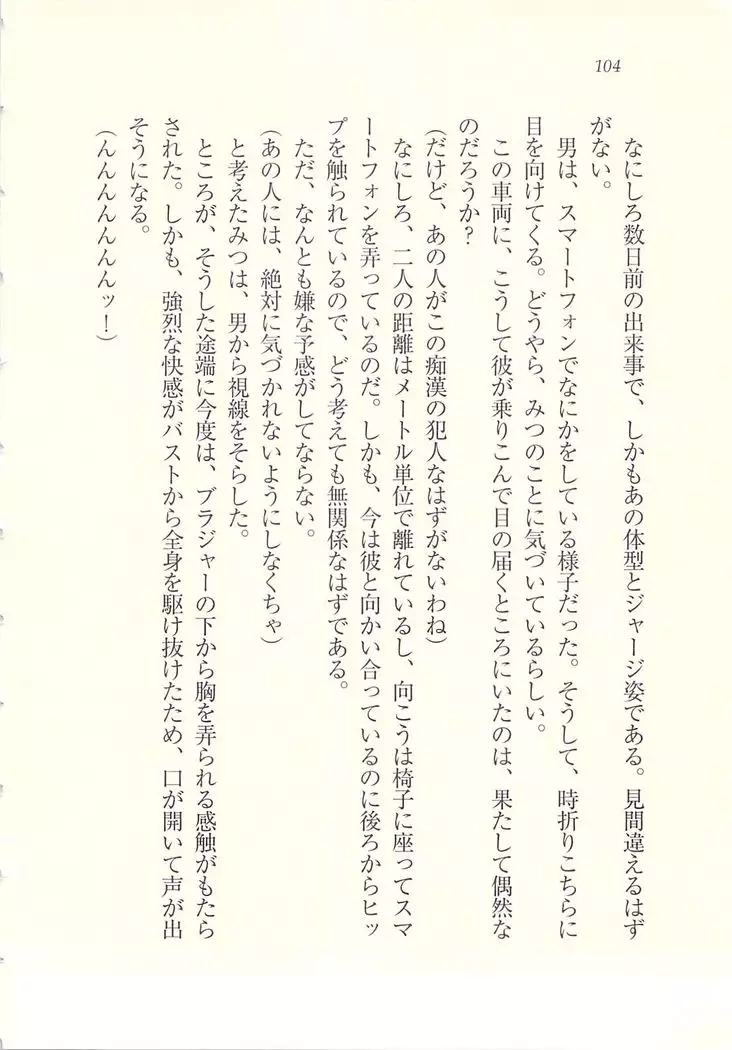 104
なにしろ数日前の出来事で、しかもあの体型とジャージ姿である。見間違えるはず
がない。
男は、スマートフォンでなにかをしている様子だった。そうして、時折りこちらに
目を向けてくる。どうやら、みつのことに気づいているらしい。
この車両に、こうして彼が乗りこんで目の届くところにいたのは、果たして偶然な
のだろうか?
(だけど、あの人がこの痴漢の犯人なはずがないわね)
なにしろ、二人の距離はメートル単位で離れているし、向こうは椅子に座ってスマ
ートフォンを弄っているのだ。しかも、今は彼と向かい合っているのに後ろからヒッ
プを触られているので、どう考えても無関係なはずである。
ただ、なんとも嫌な予感がしてならない。
(あの人には、絶対に気づかれないようにしなくちゃ)
と考えたみつは、男から視線をそらした。
ところが、そうした途端に今度は、ブラジャーの下から胸を弄られる感触がもたら
された。しかも、強烈な快感がバストから全身を駆け抜けたため、口が開いて声が出
そうになる。
(んんんんんんんッ!)